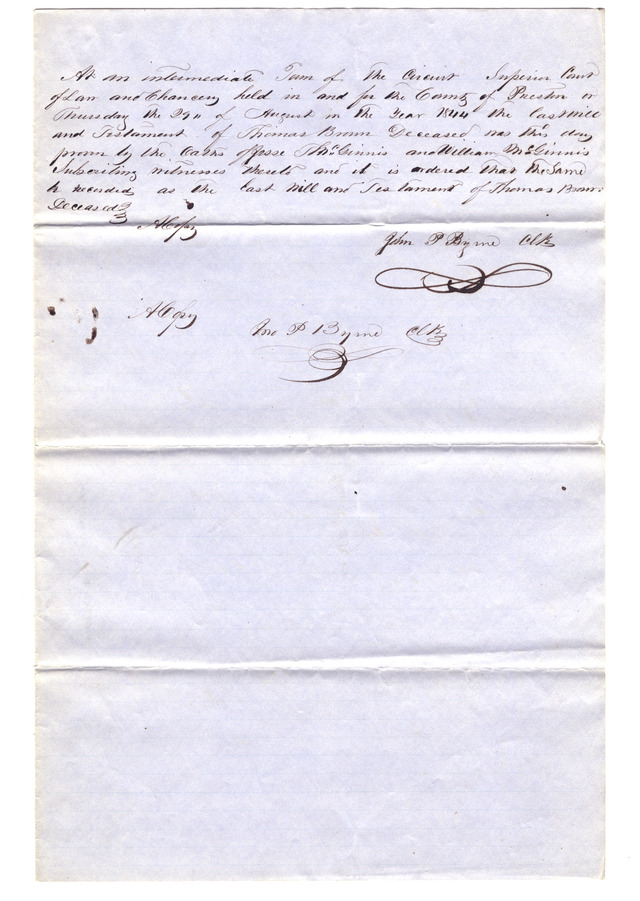 At an intermediate Term of the Circuit Superior Court
of Law and Chancery held in and for the County of Preston on
Thursday the 29th of August in the Year 1844 the last Will
and Testament of Thomas Brown Deceased was this day
proven by the Oaths of McGinnis and William McGinnis
Subscribing witnesses thereto and it is ordered that the Same
be recorded as the last Will and Testament of Thomas Brown
Deceased
A Copy
John P Byrne Clk
A Copy
Jno P Byrne Clk